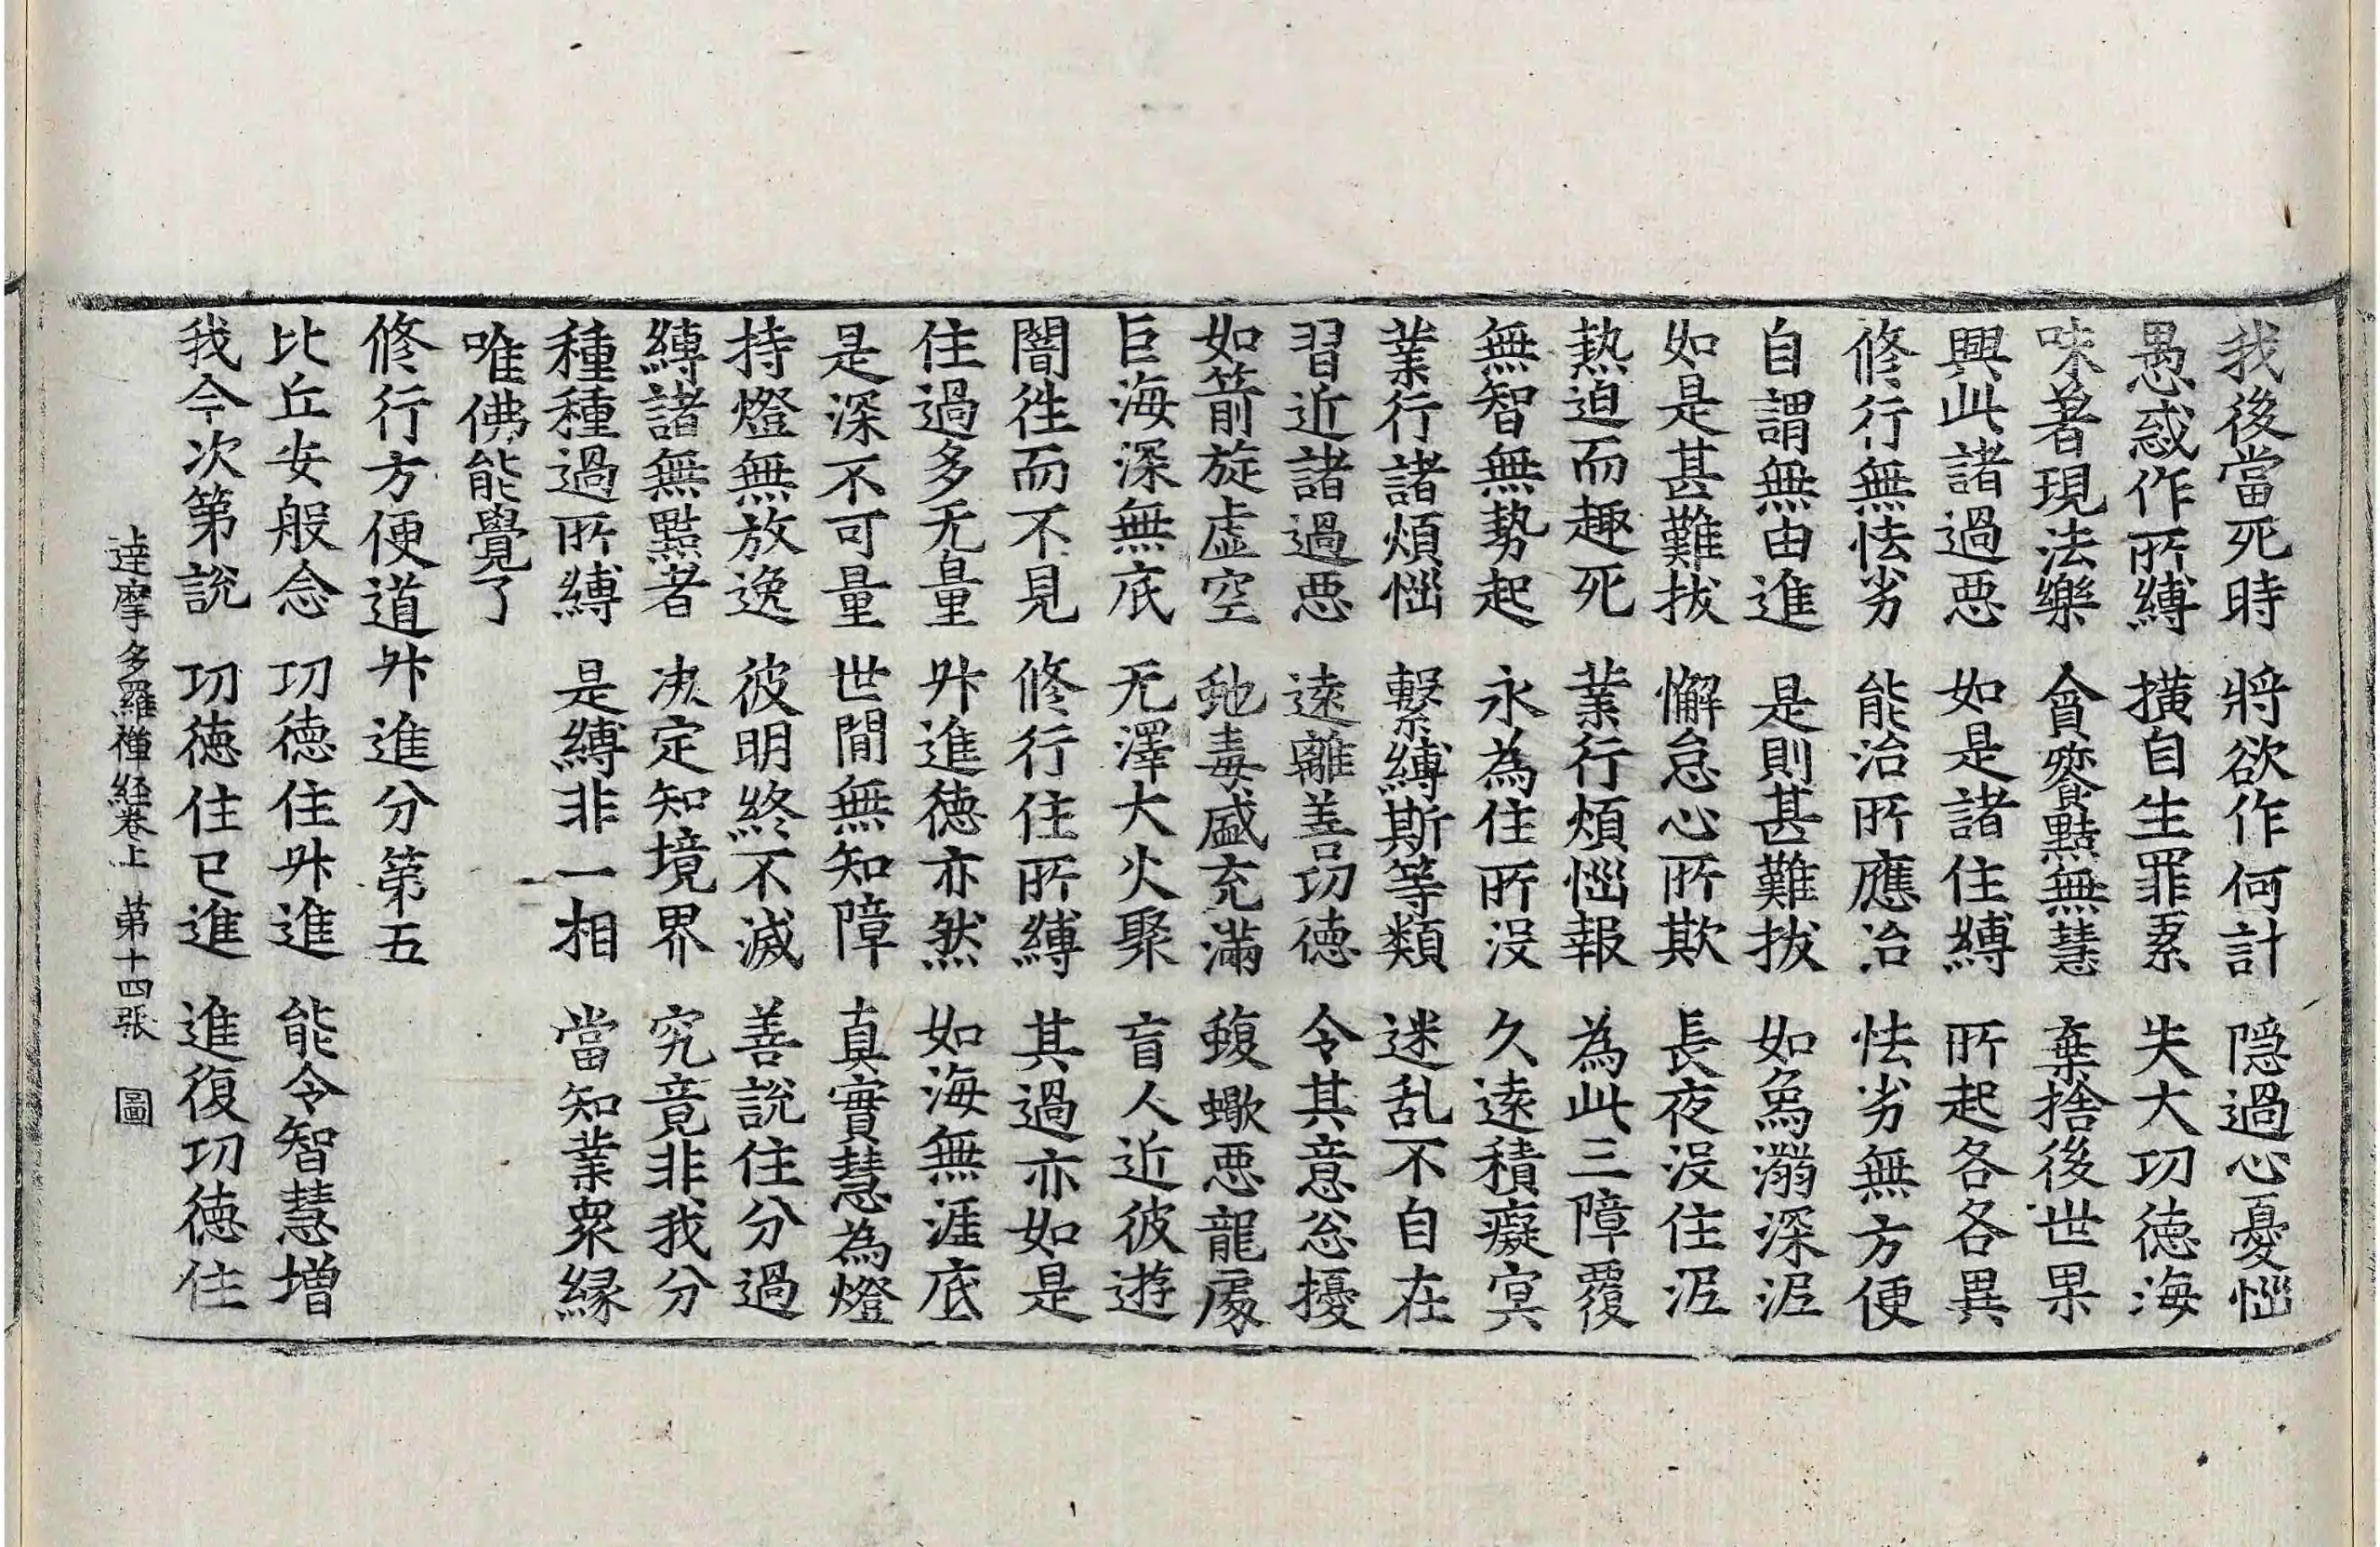 我後當死時　將欲作何計　隱過心憂惱
愚惑作所縛　橫自生罪累　失大功德海
味著現法樂　貪餮黠無慧　棄捨後世果
興此諸過惡　如是諸住縛　所起各各異
修行無怯劣　能治所應治　怯劣無方便
自謂無由進　是則甚難拔　如象溺深泥
如是甚難拔　懈怠心所欺　長夜没住泥
熱迫而趣死　業行煩惱報　為此三障覆
無智無勢起　永為住所没　久遠積癡冥
業行諸煩惱　繫縛斯等類　迷乱不自在
習近諸過惡　遠離善功德　令其意忩擾
如箭旋虛空　虵毒盛充滿　蝮蠍惡龍處
巨海深無底　无澤大火聚　盲人近彼遊
闇徃而不見　修行住所縛　其過亦如是
住過多无量　升進德亦然　如海無涯底
是深不可量　世間無知障　真實慧為燈
持燈無放逸　彼明終不滅　善說住分過
縛諸無黠者　决定知境界　究竟非我分
種種過所縛　是縛非一相　當知業衆緣
唯佛能覺了
修行方便道升進分第五
比丘安般念　功德住升進　能令智慧增
我今次第說　功德住已進　進復功德住
達摩多羅禪經卷上　第十四張　圖